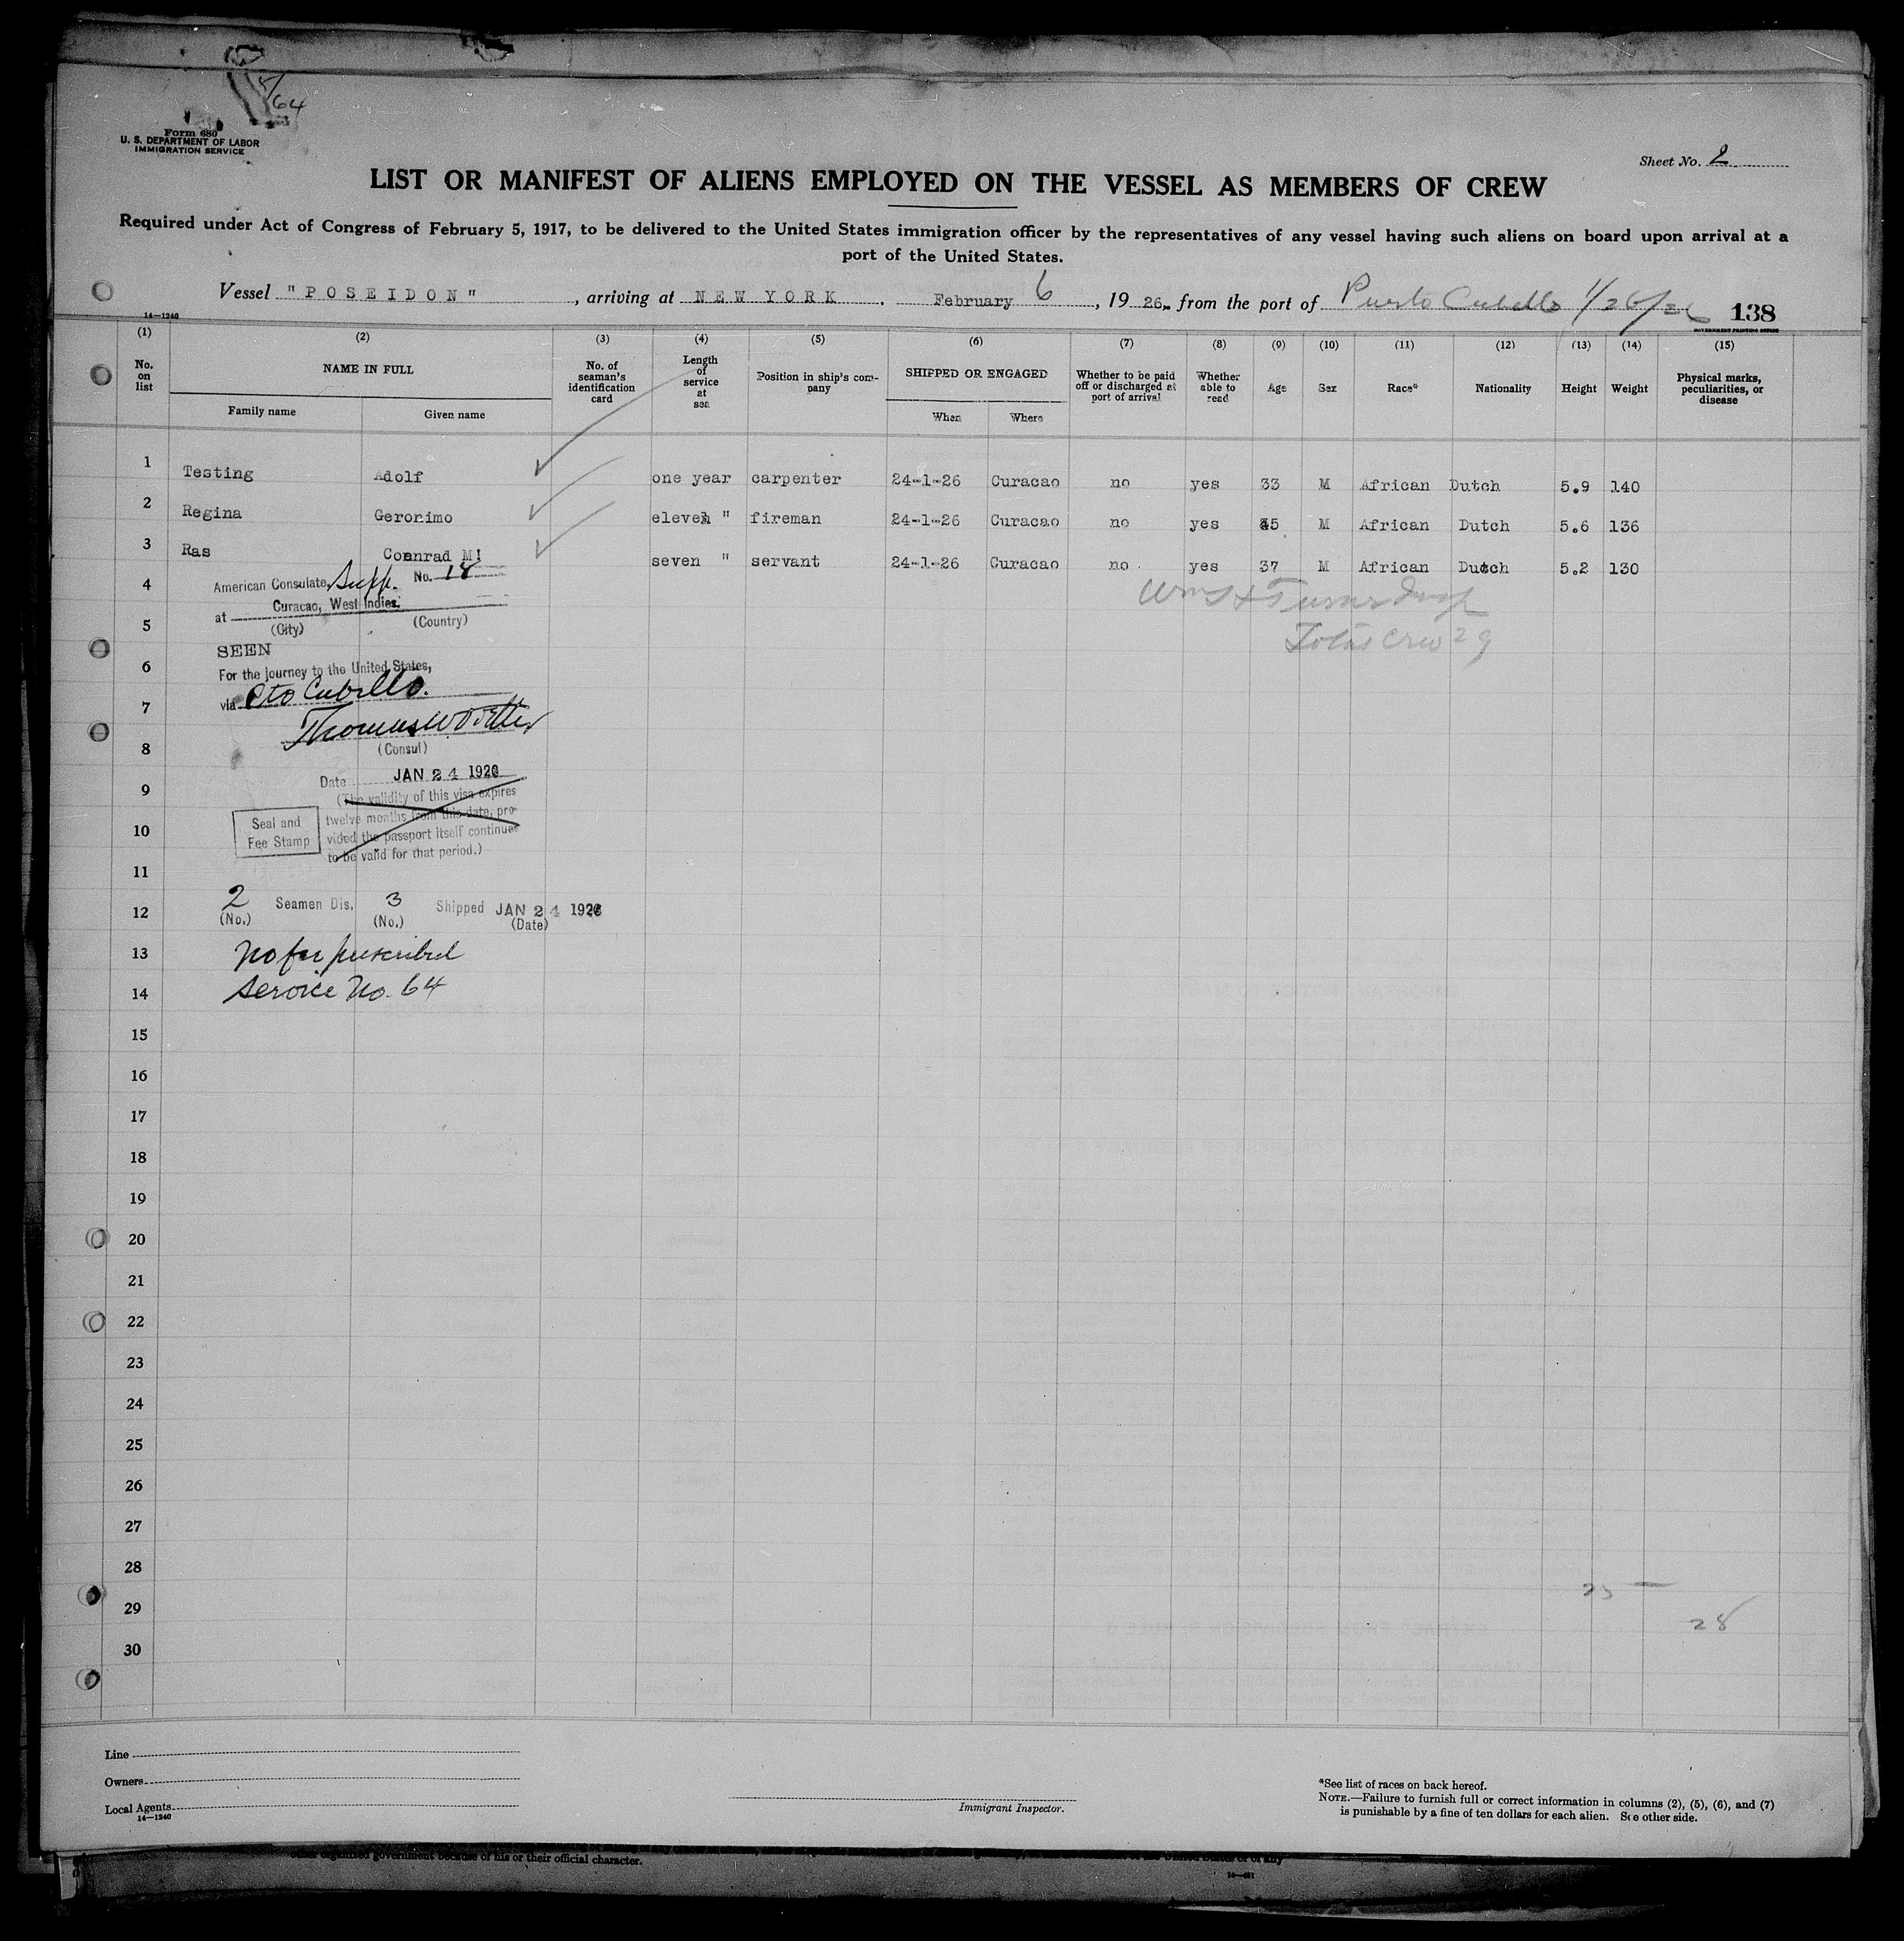 5/64
Form 680
U. S. DEPARTMENT OF LABOR
IMMIGRATION SERVICE
Sheet No. 2
LIST OR MANIFEST OF ALIENS EMPLOYED ON THE VESSEL AS MEMBERS OF CREW
Required under Act of Congress of February 5, 1917, to be delivered to the United States immigration officer by the representatives of any vessel having such aliens on board upon arrival at a
port of the United States.
Vessel "POSEIDON", arriving at NEW YORK, February 6, 1926, from the port of Puerto Cabello 1/26/26 138
14—1240 GOVERNMENT PRINTING OFFICE
(1) (2) (3) (4) (5) (6) (7) (8) (9) (10) (11) (12) (13) (14) (15)
No. on list NAME IN FULL No. of seaman's identification card Length of service at sea Position in ship's company SHIPPED OR ENGAGED Whether to be paid off or discharged at port of arrival Whether able to read Age Sex Race* Nationality Height Weight Physical marks, peculiarities, or disease
Family name Given name When Where
1 Testing Adolf one year carpenter 24-1-26 Curacao no yes 33 M African Dutch 5.9 140
2 Regina Geronimo eleven " fireman 24-1-26 Curacao no yes 45 M African Dutch 5.6 136
3 Ras Connrad M! seven " servant 24-1-26 Curacao no yes 37 M African Dutch 5.2 130
4 American Consulate Supp. No. 18
at Curacao, West Indies.
5 (City) (Country)
Total Crew 29
SEEN
6 For the journey to the United States,
7 via Pto Cabello.
8 (Consul)
Date JAN 24 1926
9 (The validity of this visa expires
twelve months from this date, pro-
10 vided the passport itself continues
to be valid for that period.)
Seal and
Fee Stamp
11
12 2 Seamen Dis. 3 Shipped JAN 24 1926
(No.) (No.) (Date)
13 No fee prescribed
14 Service No. 64
15
16
17
18
19
20
21
22
23
24
25
26
27
28
29
28
30
Line
Owners
Local Agents
14—1240
Immigrant Inspector.
*See list of races on back hereof.
NOTE.—Failure to furnish full or correct information in columns (2), (5), (6), and (7)
is punishable by a fine of ten dollars for each alien. See other side.
other organized government because of his or their official character.